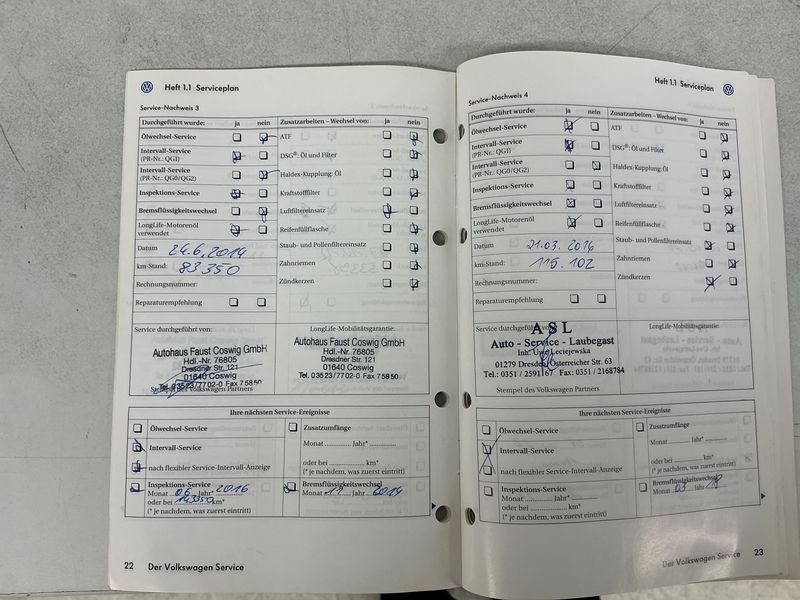 Heft 1.1 Serviceplan
Service-Nachweis 3
Durchgeführt wurde: ja nein
Zusatzarbeiten – Wechsel von: ja nein
Ölwechsel-Service
ATF
Intervall-Service
(PR-Nr.: QG1)
DSG®: Öl und Filter
Intervall-Service
(PR-Nr.: QG0/QG2)
Haldex-Kupplung: Öl
Inspektions-Service
Kraftstofffilter
Bremsflüssigkeitswechsel
Luftfiltereinsatz
LongLife-Motorenöl
verwendet
Reifenfüllflasche
Datum 24.6.2014
Staub- und Pollenfiltereinsatz
km-Stand: 83350
Zahnriemen
Rechnungsnummer:
Zündkerzen
Reparaturempfehlung
Service durchgeführt von:
LongLife-Mobilitätsgarantie:
Autohaus Faust Coswig GmbH
Hdl.-Nr. 76805
Dresdner Str. 121
01640 Coswig
Tel. 03523/7702-0 Fax 75850
Stempel des Volkswagen Partners
Autohaus Faust Coswig GmbH
Hdl.-Nr. 76805
Dresdner Str. 121
01640 Coswig
Tel. 03523/7702-0 Fax 75850
Ihre nächsten Service-Ereignisse
Ölwechsel-Service
Zusatzumfänge
Intervall-Service
Monat ............ Jahr* ............
nach flexibler Service-Intervall-Anzeige
oder bei ............ km*
(* je nachdem, was zuerst eintritt)
Inspektions-Service
Monat 06 Jahr* 2016
oder bei km*
(* je nachdem, was zuerst eintritt)
Bremsflüssigkeitswechsel
Monat Jahr 2014
22 Der Volkswagen Service
Heft 1.1 Serviceplan
Service-Nachweis 4
Durchgeführt wurde: ja nein
Zusatzarbeiten – Wechsel von: ja nein
Ölwechsel-Service
ATF
Intervall-Service
(PR-Nr.: QG1)
DSG®: Öl und Filter
Intervall-Service
(PR-Nr.: QG0/QG2)
Haldex-Kupplung: Öl
Inspektions-Service
Kraftstofffilter
Bremsflüssigkeitswechsel
Luftfiltereinsatz
LongLife-Motorenöl
verwendet
Reifenfüllflasche
Datum 21.03.2016
Staub- und Pollenfiltereinsatz
km-Stand: 115.102
Zahnriemen
Rechnungsnummer:
Zündkerzen
Reparaturempfehlung
Service durchgeführt von:
LongLife-Mobilitätsgarantie:
ASL
Auto - Service - Laubegast
Inh. Uwe Leciejewska
01279 Dresden, Österreicher Str. 63
Tel.: 0351 / 2591167 Fax: 0351 / 2168784
Stempel des Volkswagen Partners
Ihre nächsten Service-Ereignisse
Ölwechsel-Service
Zusatzumfänge
Intervall-Service
Monat ............ Jahr* ............
nach flexibler Service-Intervall-Anzeige
oder bei ............ km*
(* je nachdem, was zuerst eintritt)
Inspektions-Service
Monat ............ Jahr* ............
oder bei ............ km*
(* je nachdem, was zuerst eintritt)
Bremsflüssigkeitswechsel
Monat 03 Jahr 18
Der Volkswagen Service 23